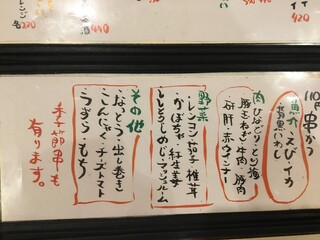 420
440
各220
110円串かつ
魚介
えび・イカ
肉
ひなどり・とり皮
豚玉ねぎ・牛肉・豚肉
砂肝・赤ウインナー
野菜
・レンコン・茄子・椎茸
・かぼちゃ・紅生姜
・ししとう・しめじ・マッシュルーム
その他
・なっとう・出し巻き
・こんにゃく・チーズトマト
・うずら・もち
季節串も
有ります。